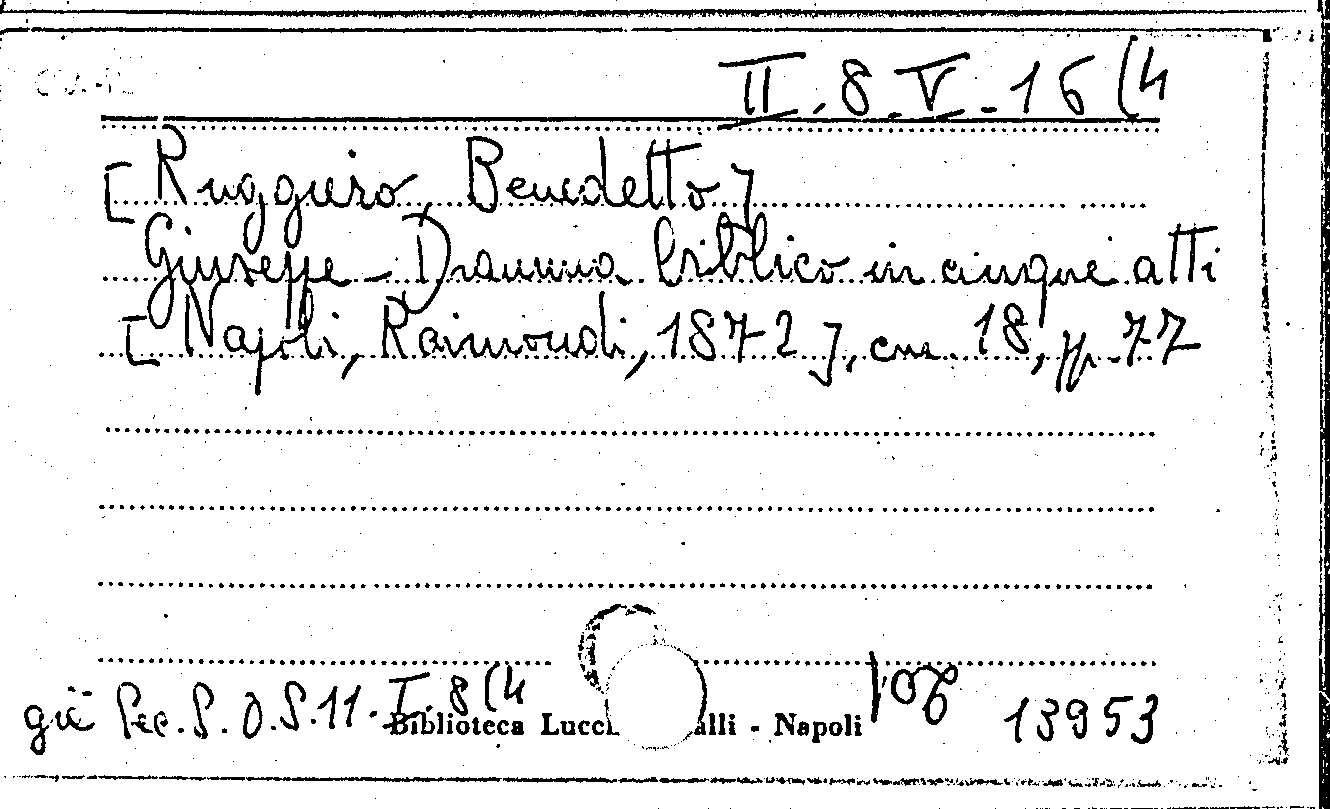 II. 8. V. 16 (4
[Ruggiero, Benedetto]
Giuseppe - Dramma biblico in cinque atti
[Napoli, Raimondi, 1872], cm. 18, pp. 77
già Sec. S. O. S. 11. I. 8 (4
Biblioteca Lucc alli - Napoli
13953